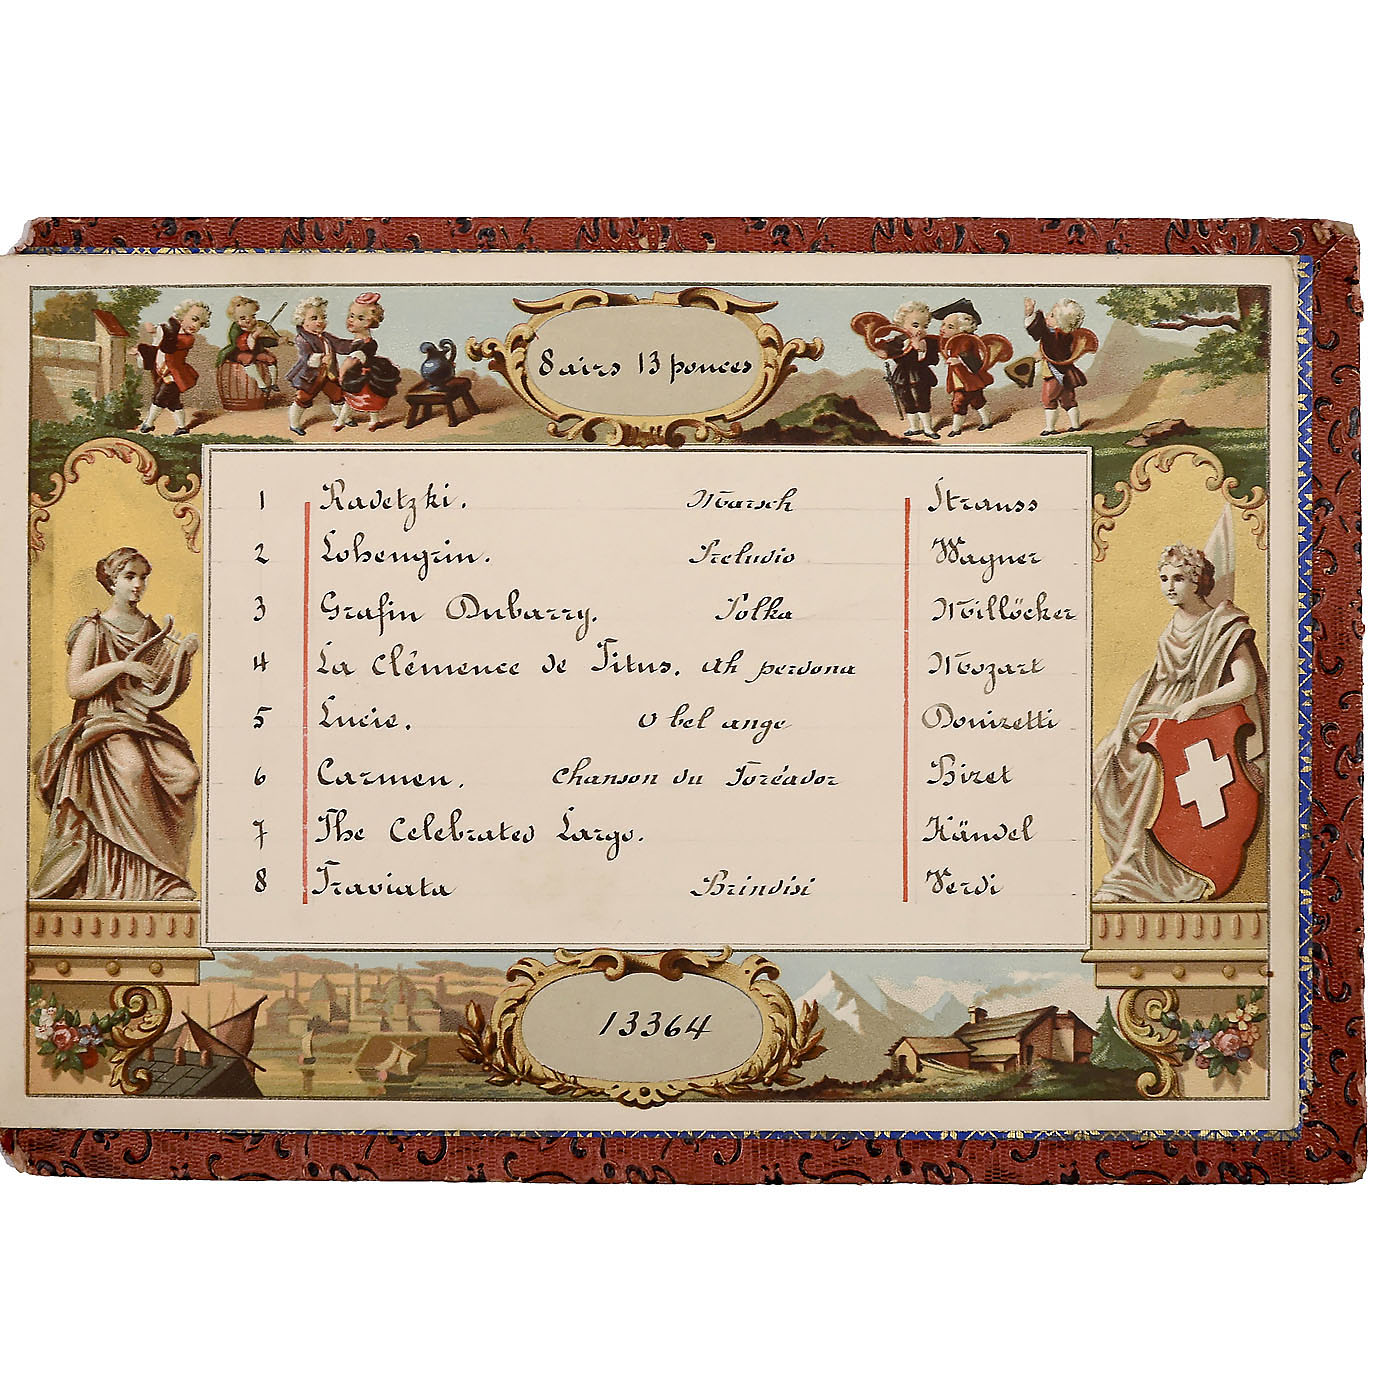 8 airs 13 pouces
1 Radetzki. Marsch Strauss
2 Lohengrin. Preludio Wagner
3 Grafin Dubarry. Polka Millöcker
4 La Clémence de Titus. Ah perdona Mozart
5 Lucie. O bel ange Donizetti
6 Carmen. Chanson du Toréador Bizet
7 The Celebrated Largo. Händel
8 Traviata Brindisi Verdi
13364